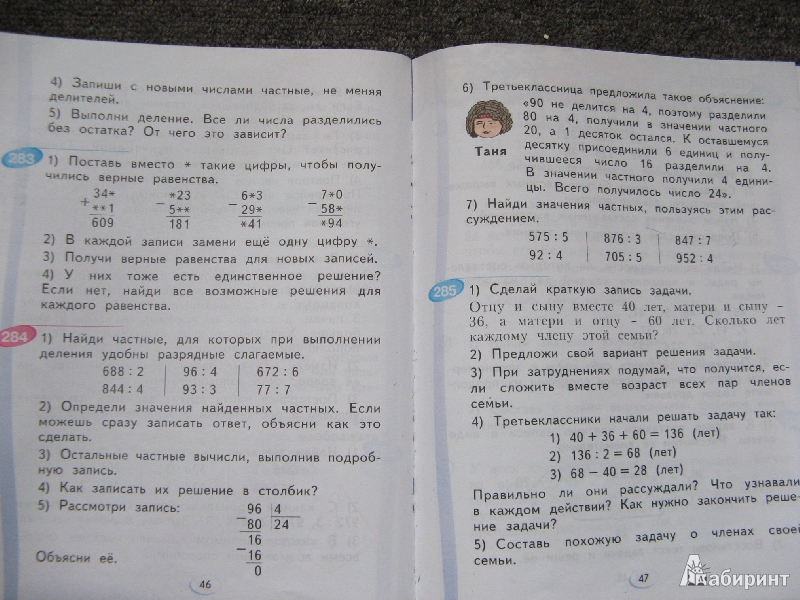 4) Запиши с новыми числами частные, не меняя
делителей.
5) Выполни деление. Все ли числа разделились
без остатка? От чего это зависит?
283 1) Поставь вместо * такие цифры, чтобы полу-
чились верные равенства.
+ 34* − *23 − 6*3 − 7*0
**1 5** 29* 58*
609 181 *41 *94
2) В каждой записи замени ещё одну цифру *.
3) Получи верные равенства для новых записей.
4) У них тоже есть единственное решение?
Если нет, найди все возможные решения для
каждого равенства.
284 1) Найди частные, для которых при выполнении
деления удобны разрядные слагаемые.
688 : 2 96 : 4 672 : 6
844 : 4 93 : 3 77 : 7
2) Определи значения найденных частных. Если
можешь сразу записать ответ, объясни как это
сделать.
3) Остальные частные вычисли, выполнив подроб-
ную запись.
4) Как записать их решение в столбик?
5) Рассмотри запись: 96 4
− 80 24
16
− 16
Объясни её. 0
46
6) Третьеклассница предложила такое объяснение:
«90 не делится на 4, поэтому разделили
80 на 4, получили в значении частного
20, а 1 десяток остался. К оставшемуся
десятку присоединили 6 единиц и полу-
Таня чившееся число 16 разделили на 4.
В значении частного получили 4 едини-
цы. Всего получилось число 24».
7) Найди значения частных, пользуясь этим рас-
суждением.
575 : 5 876 : 3 847 : 7
92 : 4 705 : 5 952 : 4
285 1) Сделай краткую запись задачи.
Отцу и сыну вместе 40 лет, матери и сыну -
36, а матери и отцу - 60 лет. Сколько лет
каждому члену этой семьи?
2) Предложи свой вариант решения задачи.
3) При затруднениях подумай, что получится, ес-
ли сложить вместе возраст всех пар членов
семьи.
4) Третьеклассники начали решать задачу так:
1) 40 + 36 + 60 = 136 (лет)
2) 136 : 2 = 68 (лет)
3) 68 − 40 = 28 (лет)
Правильно ли они рассуждали? Что узнавали
в каждом действии? Как нужно закончить реше-
ние задачи?
5) Составь похожую задачу о членах своей
семьи.
47
Лабиринт